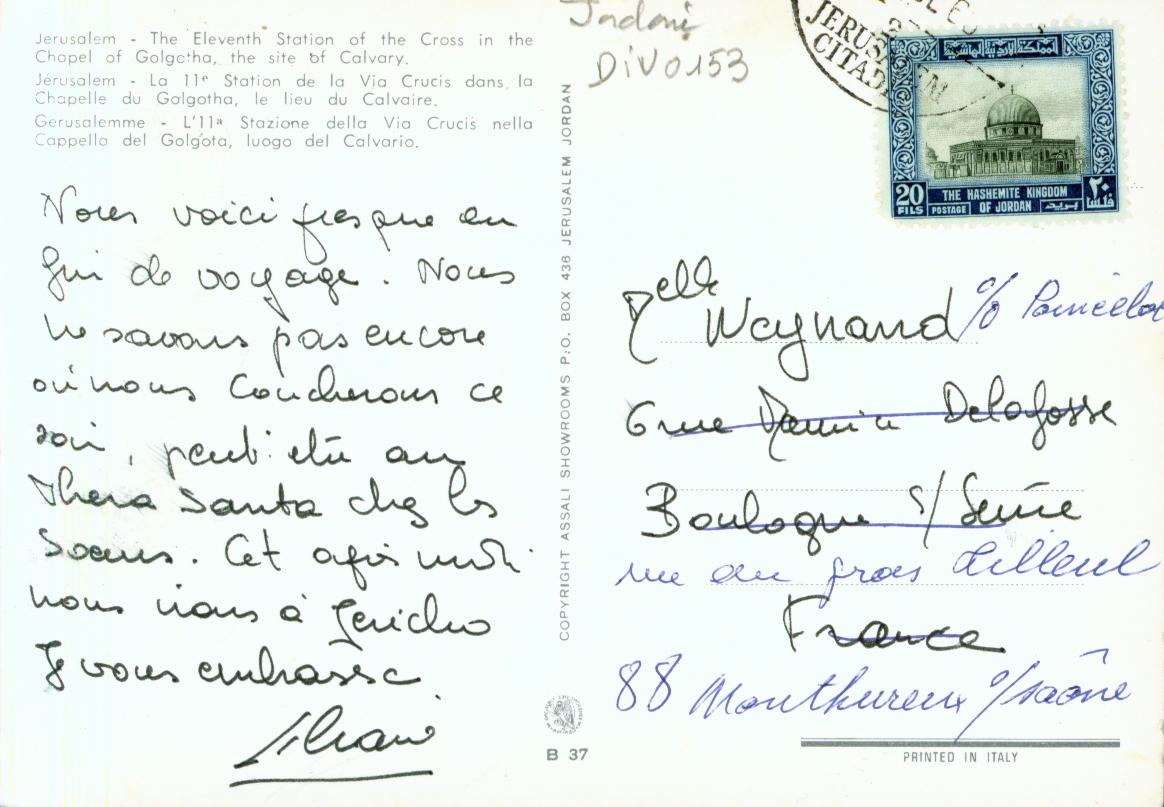 Jerusalem - The Eleventh Station of the Cross in the
Chapel of Golgotha, the site of Calvary.
Jérusalem - La 11e Station de la Via Crucis dans la
Chapelle du Golgotha, le lieu du Calvaire.
Gerusalemme - L'11a Stazione della Via Crucis nella
Cappella del Golgota, luogo del Calvario.
Nous voici presque au
fin de voyage. Nous
ne savons pas encore
où nous coucherons ce
soir, peut-être au
Thera Santa chez les
Soeurs. Cet après midi
nous irons à Jericho
Je vous embrasse
COPYRIGHT ASSALI SHOWROOMS P.O. BOX 436 JERUSALEM JORDAN
B 37
Jordanie
DIV0153
JERUSALEM
CITADEL
المملكة الأردنية الهاشمية
20 FILS
POSTAGE
THE HASHEMITE KINGDOM
OF JORDAN
بريد
٢٠ فلسا
Melle Weynand c/o
6 rue Delafosse
Boulogne s/ Seine
rue du gros tilleul
France
88 Monthureux s/saône
PRINTED IN ITALY